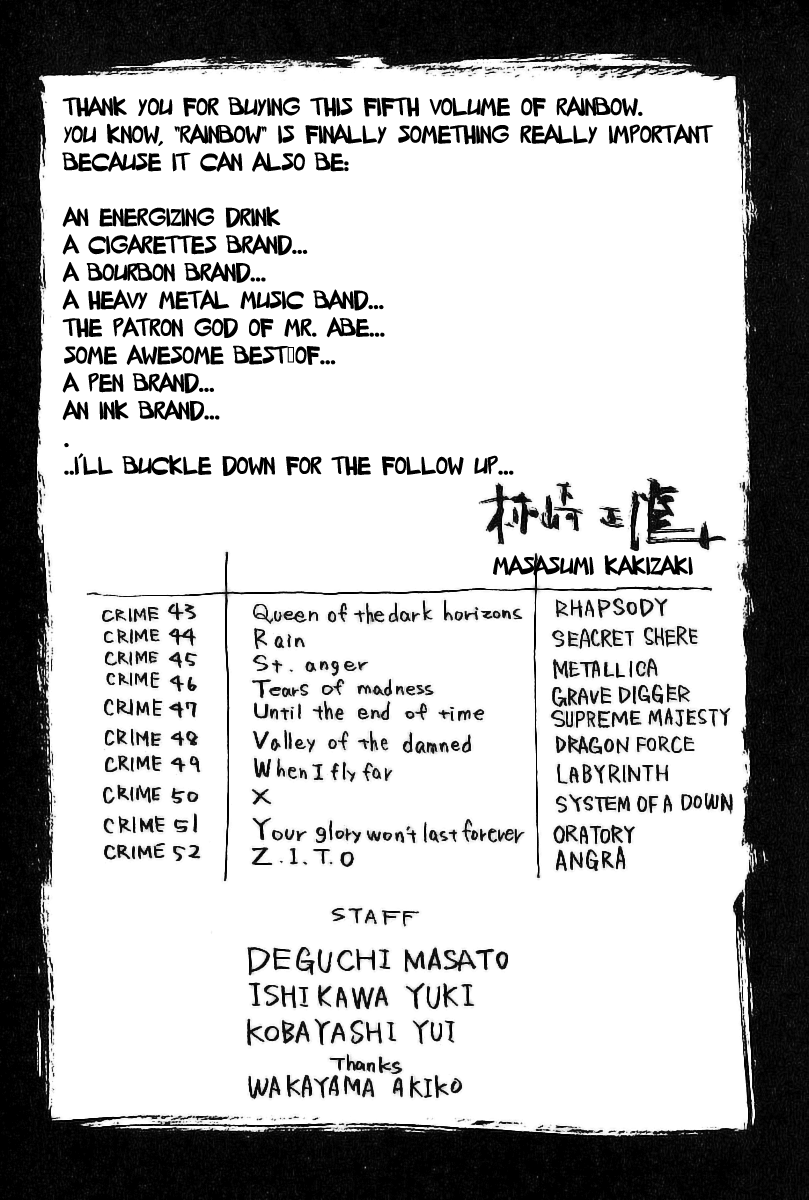 THANK YOU FOR BUYING THIS FIFTH VOLUME OF RAINBOW.
YOU KNOW, "RAINBOW" IS FINALLY SOMETHING REALLY IMPORTANT
BECAUSE IT CAN ALSO BE:
AN ENERGIZING DRINK
A CIGARETTES BRAND...
A BOURBON BRAND...
A HEAVY METAL MUSIC BAND...
THE PATRON GOD OF MR. ABE...
SOME AWESOME BEST▯OF...
A PEN BRAND...
AN INK BRAND...
.
..I'LL BUCKLE DOWN FOR THE FOLLOW UP...
柿崎正澄
MASASUMI KAKIZAKI
CRIME 43 Queen of the dark horizons RHAPSODY
CRIME 44 Rain SEACRET SHERE
CRIME 45 St. anger METALLICA
CRIME 46 Tears of madness GRAVE DIGGER
CRIME 47 Until the end of time SUPREME MAJESTY
CRIME 48 Valley of the damned DRAGON FORCE
CRIME 49 When I fly far LABYRINTH
CRIME 50 X SYSTEM OF A DOWN
CRIME 51 Your glory won't last forever ORATORY
CRIME 52 Z.I.T.O ANGRA
STAFF
DEGUCHI MASATO
ISHIKAWA YUKI
KOBAYASHI YUI
Thanks
WAKAYAMA AKIKO